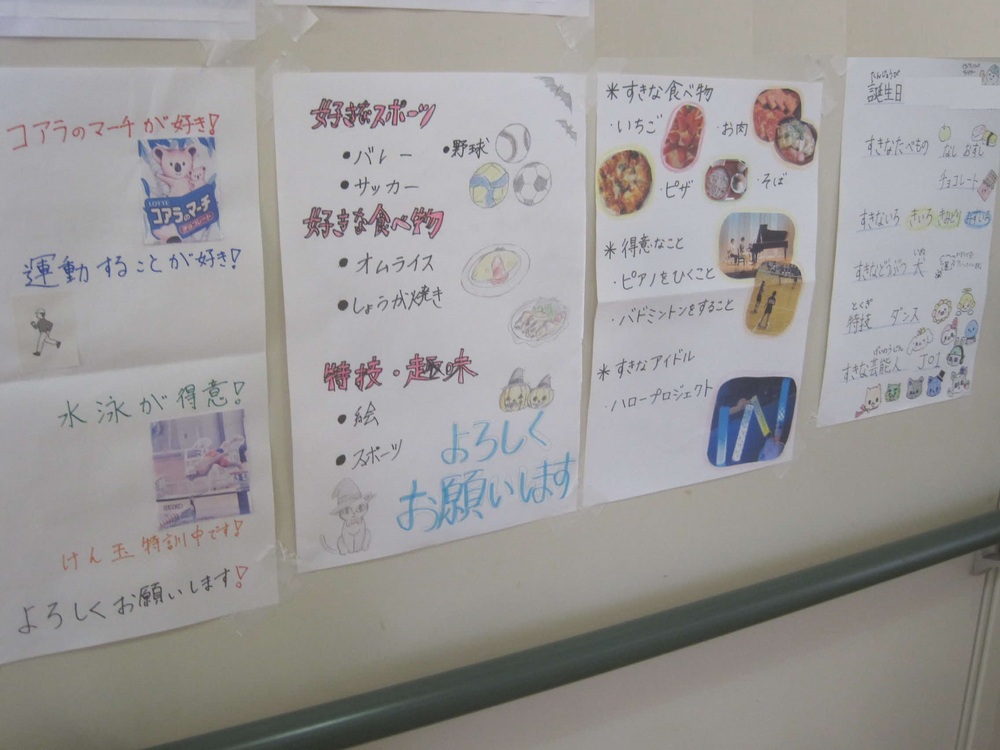 コアラのマーチが好き!
LOTTE
コアラのマーチ
チョコレート
運動することが好き!
水泳が得意!
けん玉特訓中です!
よろしくお願いします!
好きなスポーツ
・バレー ・野球
・サッカー
好きな食べ物
・オムライス
・しょうが焼き
特技・趣味
・絵
・スポーツ
よろしく
お願いします
*すきな食べ物
・いちご ・お肉
・ピザ ・そば
*得意なこと
・ピアノをひくこと
・バドミントンをすること
*すきなアイドル
・ハロープロジェクト
たんじょうび
誕生日
すきなたべもの なし おすし
チョコレート
すきないろ きいろ きみどり みずいろ
すきなどうぶつ 犬
いぬ
とくぎ
特技 ダンス
げいのうじん
すきな芸能人 JO1